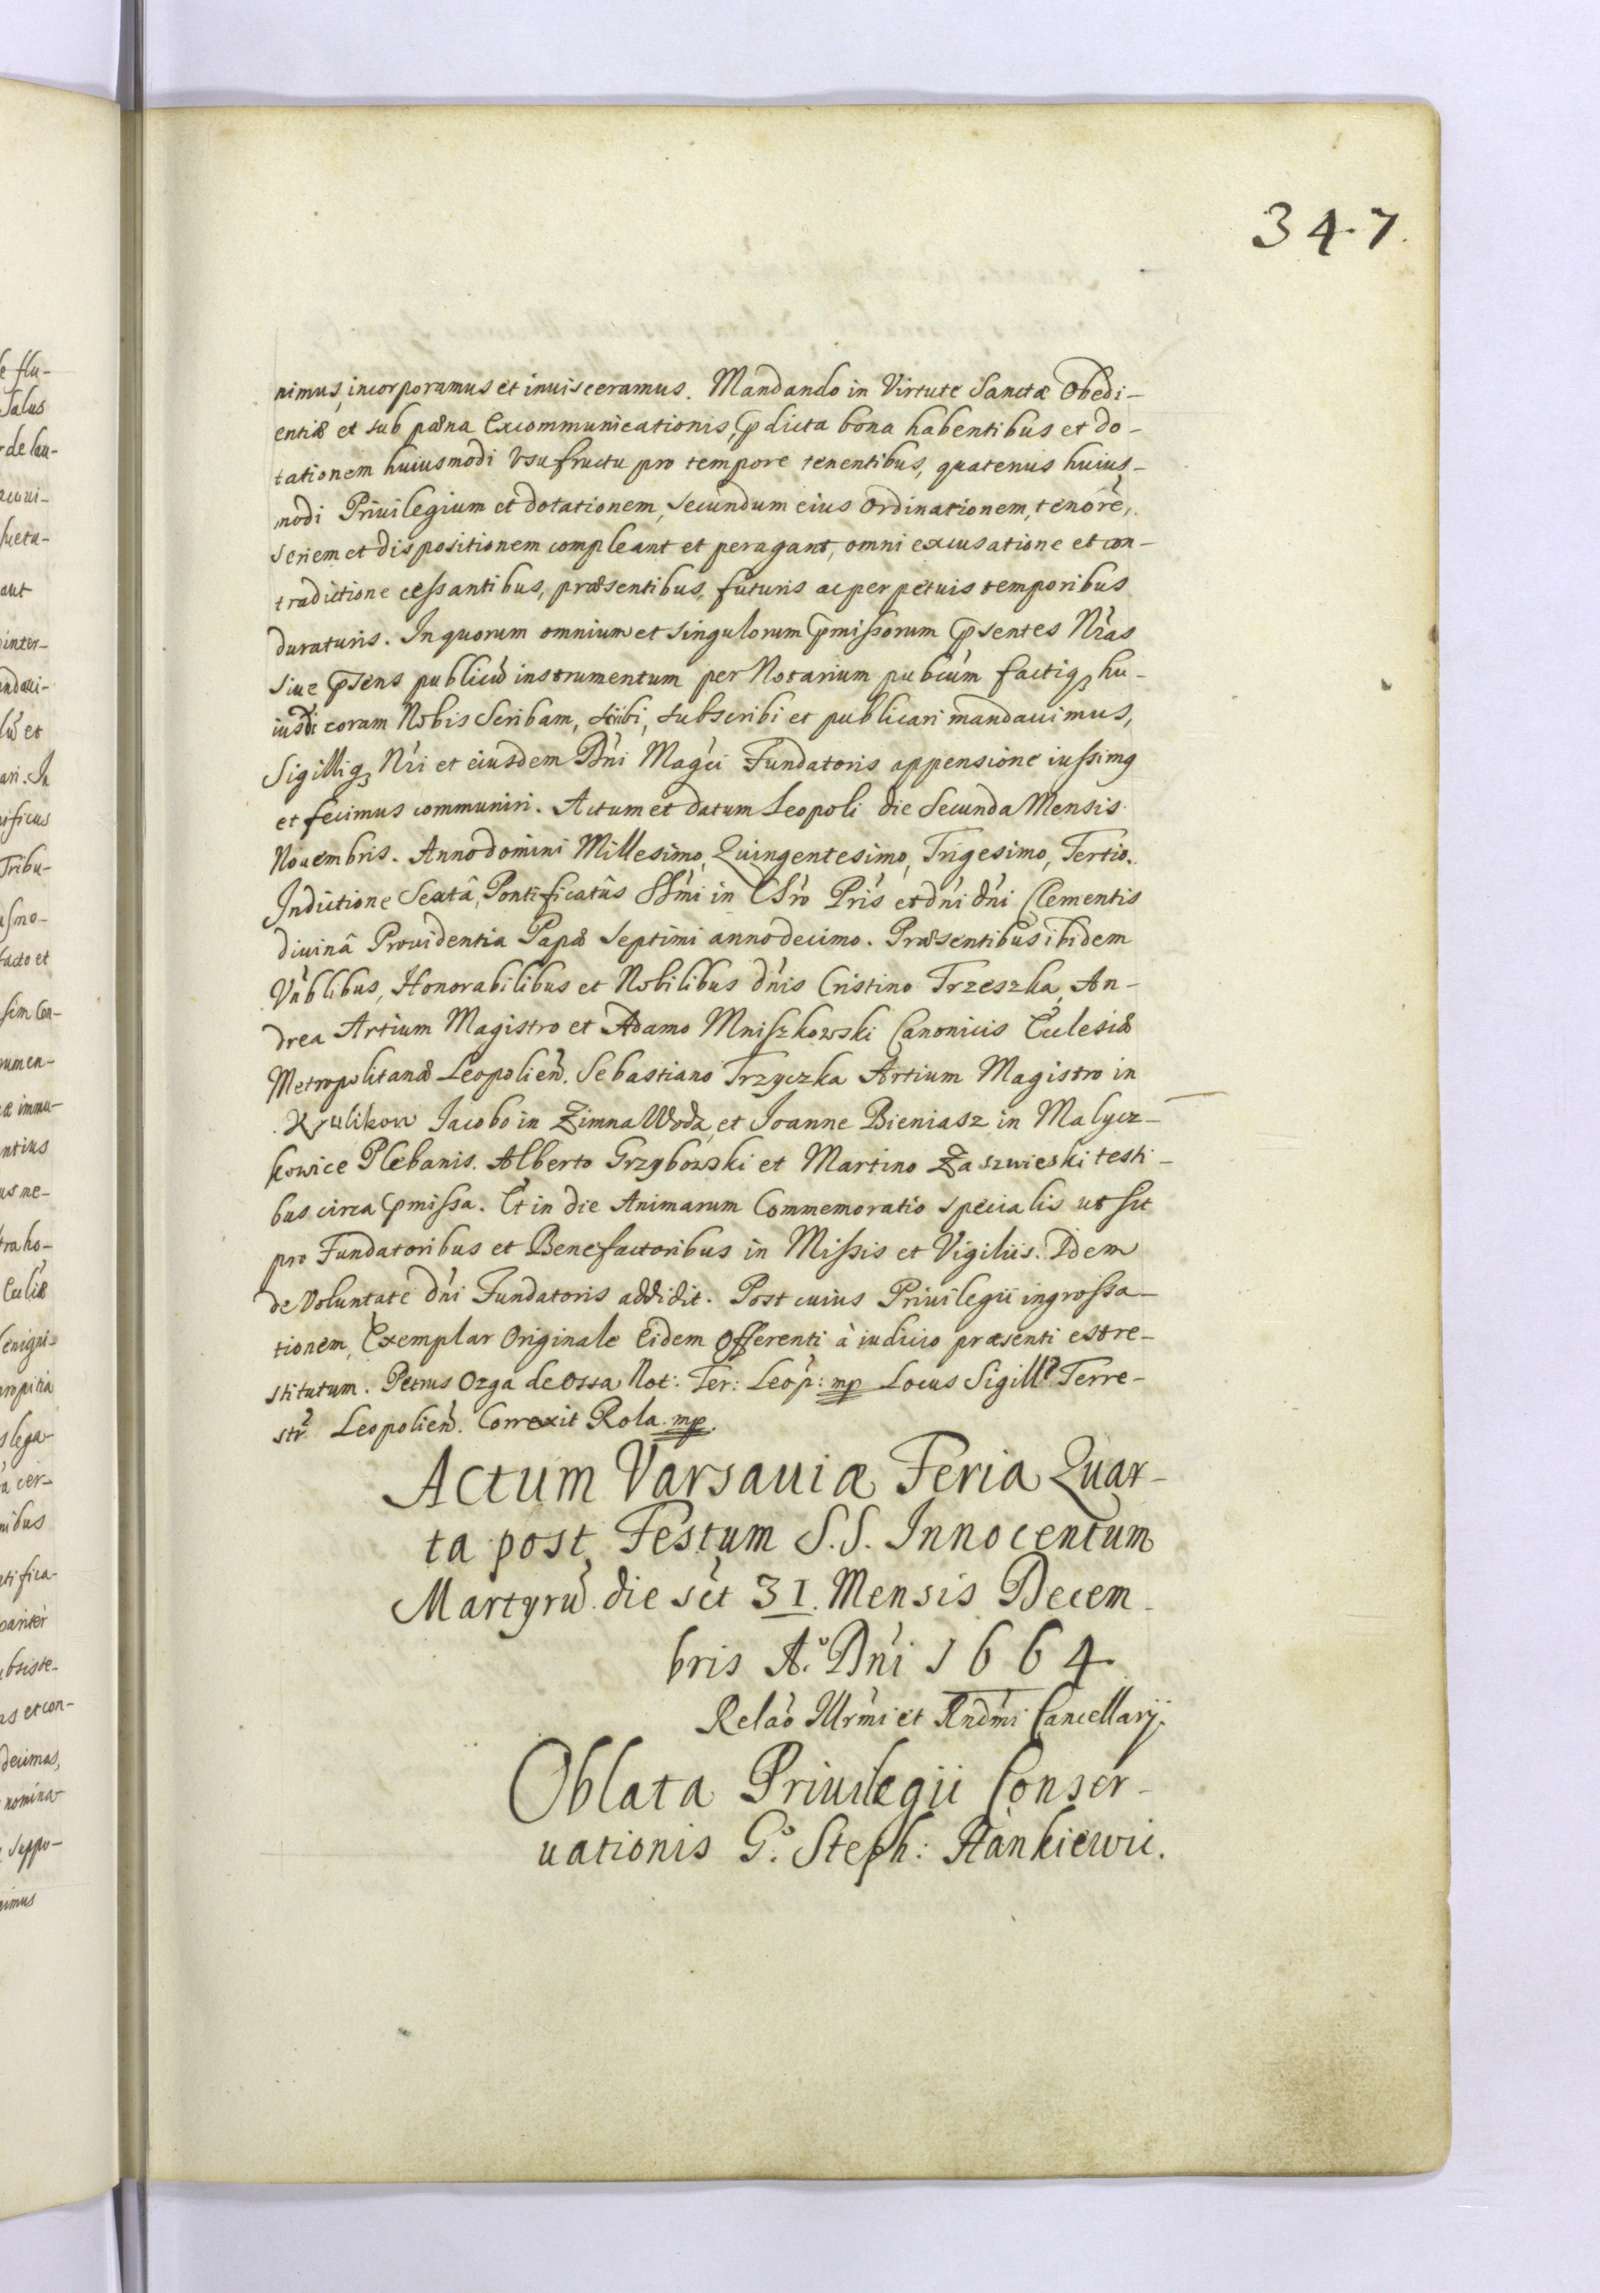 347.
nimus, incorporamus et inuisceramus. Mandando in Virtute Sanctæ Obedi-
entiæ et sub pæna Excommunicationis, p̄dicta bona habentibus et do-
tationem huiusmodi Vsufructu pro tempore tenentibus, quatenus huius-
modi Priuilegium et dotationem, secundum eius ordinationem, tenorē,
seriem et dispositionem compleant et peragant, omni excusatione et con-
tradictione cessantibus, præsentibus, futuris ac perpetuis temporibus
duraturis. In quorum omnium et singulorum p̄missorum p̄sentes Nr̃as
siue p̄sens publicū instrumentum per Notarium pubcum factiq₃ hu-
iusdi coram Nobis Scribam, scribi, subscribi et publicari mandauimus,
Sigilliq₃ Nr̃i et eiusdem Dñi Magci Fundatoris appensione iussimq
et fecimus communiri. Actum et datum Leopoli die Secunda Mensis
Nouembris. Anno domini Millesimo, Quingentesimo, Trigesimo, Tertio.
Indictione Sextâ, Pontificatûs SSm̃i in Chr̃o Pr̃is et dñi dñi Clementis
diuinâ Prouidentia Papæ Septimi anno decimo. Præsentibus ibidem
Vñblibus, Honorabilibus et Nobilibus dñis Cristino Trzeszka, An-
drea Artium Magistro et Adamo Mniszkowski Canonicis Ecclesiæ
Metropolitanæ Leopolieñ. Sebastiano Trzyczka Artium Magistro in
Krulikow Jacobo in Zimna Woda, et Joanne Bieniasz in Malycz-
kowice Plebanis. Alberto Grzybowski et Martino Zaszwieski testi-
bus circa p̄missa. Et in die Animarum Commemoratio specialis ut sit
pro Fundatoribus et Benefactoribus in Missis et Vigiliis. Idem
de Voluntate dñi Fundatoris addidit. Post cuius Priuilegii ingrossa-
tionem, Exemplar Originale Eidem Offerenti à iudicio præsenti est re-
stitutum. Petrus Ozga de Ossa Not: Ter: Leop: mp Locus Sigilli Terre-
str. Leopolieñ. Correxit Rola mp.
Actum Varsauiæ Feria Quar-
ta post Festum S.S. Innocentum
Martyrū die sct 31. Mensis Decem-
bris A.º Dñi 1664
Relão Illrmi et Rndmi Cancellarij.
Oblata Priuilegii Conser-
uationis G.º Steph: Hankiewic.